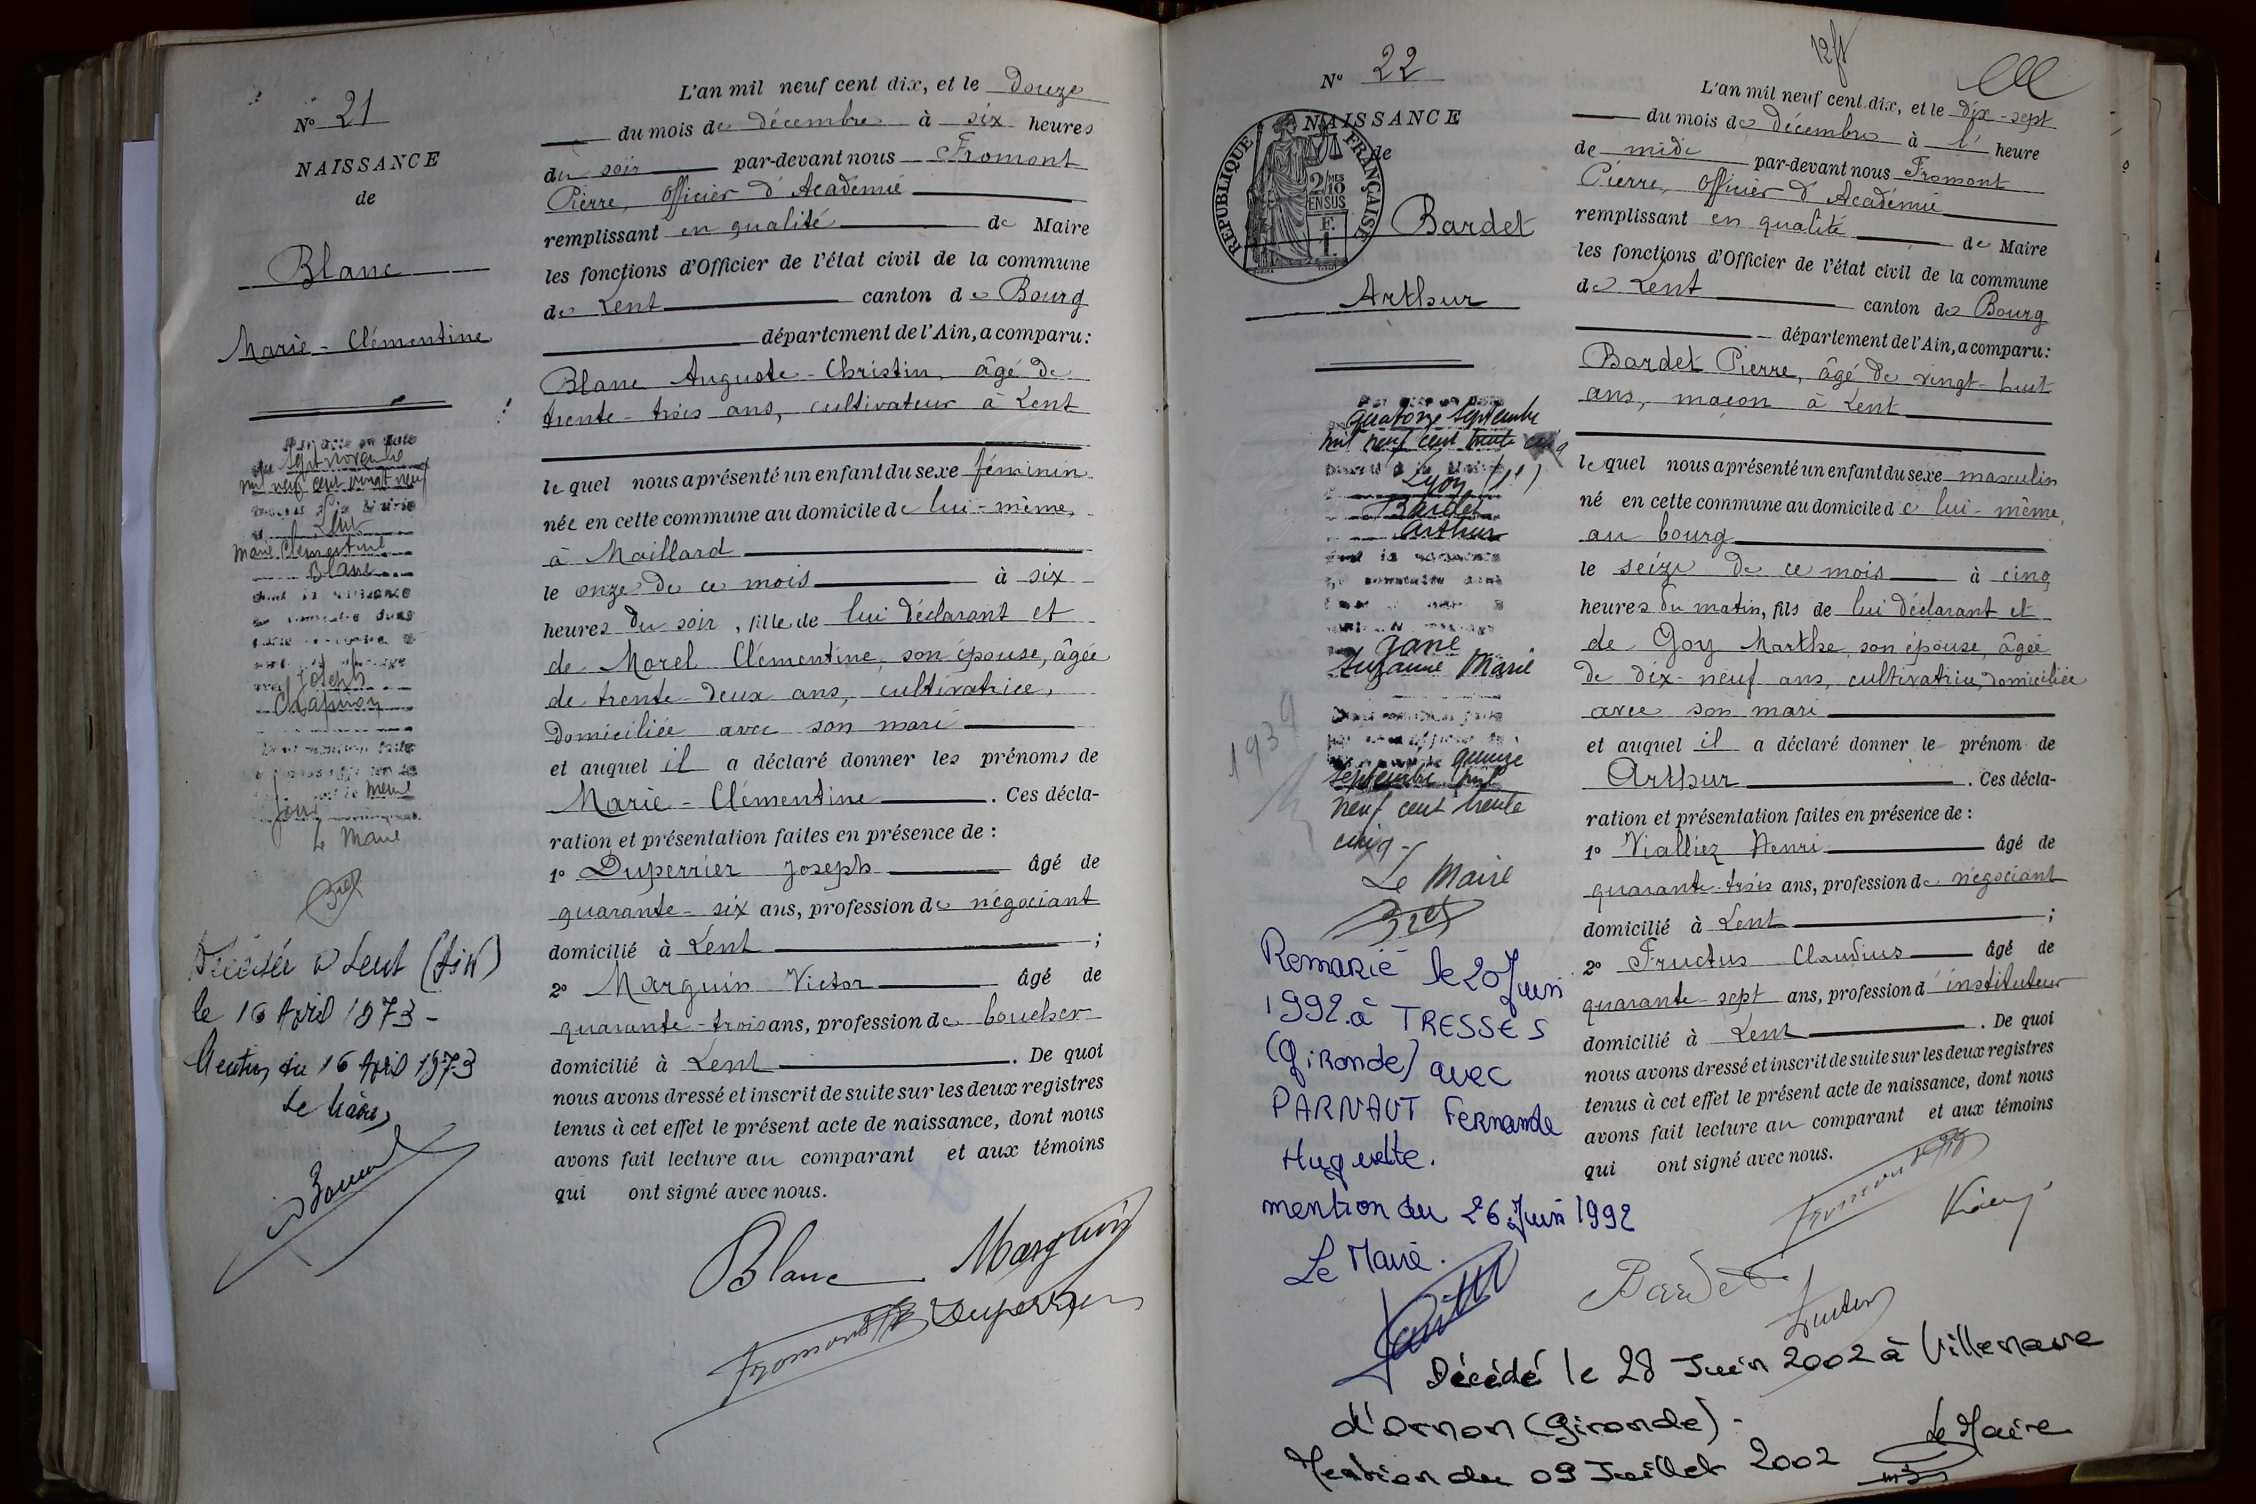 N° 21
NAISSANCE
de
Blanc
Marie-Clémentine
sept novembre
mil neuf cent vingt neuf
Lent
Marie Clémentine
Blanc
dont la naissance
Joseph
Chapuron
même
jour
Le Maire
Décédée à Lent (Ain)
le 16 Avril 1973 -
Mention du 16 Avril 1973
Le Maire,
L'an mil neuf cent dix, et le douze
du mois de décembre à six heures
du soir par-devant nous Fromont
Pierre, Officier d'Académie
remplissant en qualité de Maire
les fonctions d'Officier de l'état civil de la commune
de Lent canton de Bourg
département de l'Ain, a comparu:
Blanc Auguste-Christin, âgé de
trente-trois ans, cultivateur à Lent
lequel nous a présenté un enfant du sexe féminin
née en cette commune au domicile de lui-même,
à Maillard
le onze de ce mois à six
heures du soir, fille de lui déclarant et
de Morel Clémentine, son épouse, âgée
de trente-deux ans, cultivatrice,
domiciliée avec son mari
et auquel il a déclaré donner les prénoms de
Marie-Clémentine. Ces décla-
ration et présentation faites en présence de :
1° Duperrier Joseph âgé de
quarante-six ans, profession de négociant
domicilié à Lent ;
2° Marguin Victor âgé de
quarante-trois ans, profession de boucher
domicilié à Lent. De quoi
nous avons dressé et inscrit de suite sur les deux registres
tenus à cet effet le présent acte de naissance, dont nous
avons fait lecture au comparant et aux témoins
qui ont signé avec nous.
Blanc Marguin
Fromont Duperrier
12 ft
N° 22
NAISSANCE
de
REPUBLIQUE FRANÇAISE
2/10 MES
EN SUS
F.
1.
Bardet
Arthur
quatorze Septembre
mil neuf cent trente cinq
Lyon (1er)
Bardet
Arthur
dont la naissance
Jane
Suzanne Marie
quinze
septembre mil
neuf cent trente
cinq -
Le Maire
1939
Remarié le 20 Juin
1992 à TRESSES
(Gironde) avec
PARNAUT Fernande
Huguette.
mention du 26 Juin 1992
Le Maire.
L'an mil neuf cent dix, et le dix-sept
du mois de décembre à l' heure
de midi par-devant nous Fromont
Pierre, Officier d'Académie
remplissant en qualité de Maire
les fonctions d'Officier de l'état civil de la commune
de Lent canton de Bourg
département de l'Ain, a comparu:
Bardet Pierre, âgé de vingt-huit
ans, maçon à Lent
lequel nous a présenté un enfant du sexe masculin
né en cette commune au domicile de lui-même,
au bourg
le seize de ce mois à cinq
heures du matin, fils de lui déclarant et
de Goy Marthe, son épouse, âgée
de dix-neuf ans, cultivatrice, domiciliée
avec son mari
et auquel il a déclaré donner le prénom de
Arthur. Ces décla-
ration et présentation faites en présence de :
1° Vialliez Henri âgé de
quarante-trois ans, profession de négociant
domicilié à Lent ;
2° Fructus Claudius âgé de
quarante-sept ans, profession d'instituteur
domicilié à Lent. De quoi
nous avons dressé et inscrit de suite sur les deux registres
tenus à cet effet le présent acte de naissance, dont nous
avons fait lecture au comparant et aux témoins
qui ont signé avec nous.
Fromont
Bardet
Fructus
Décédé le 28 Juin 2002 à Villenave
d'Ornon (Gironde) -
Mention du 09 Juillet 2002
Le Maire